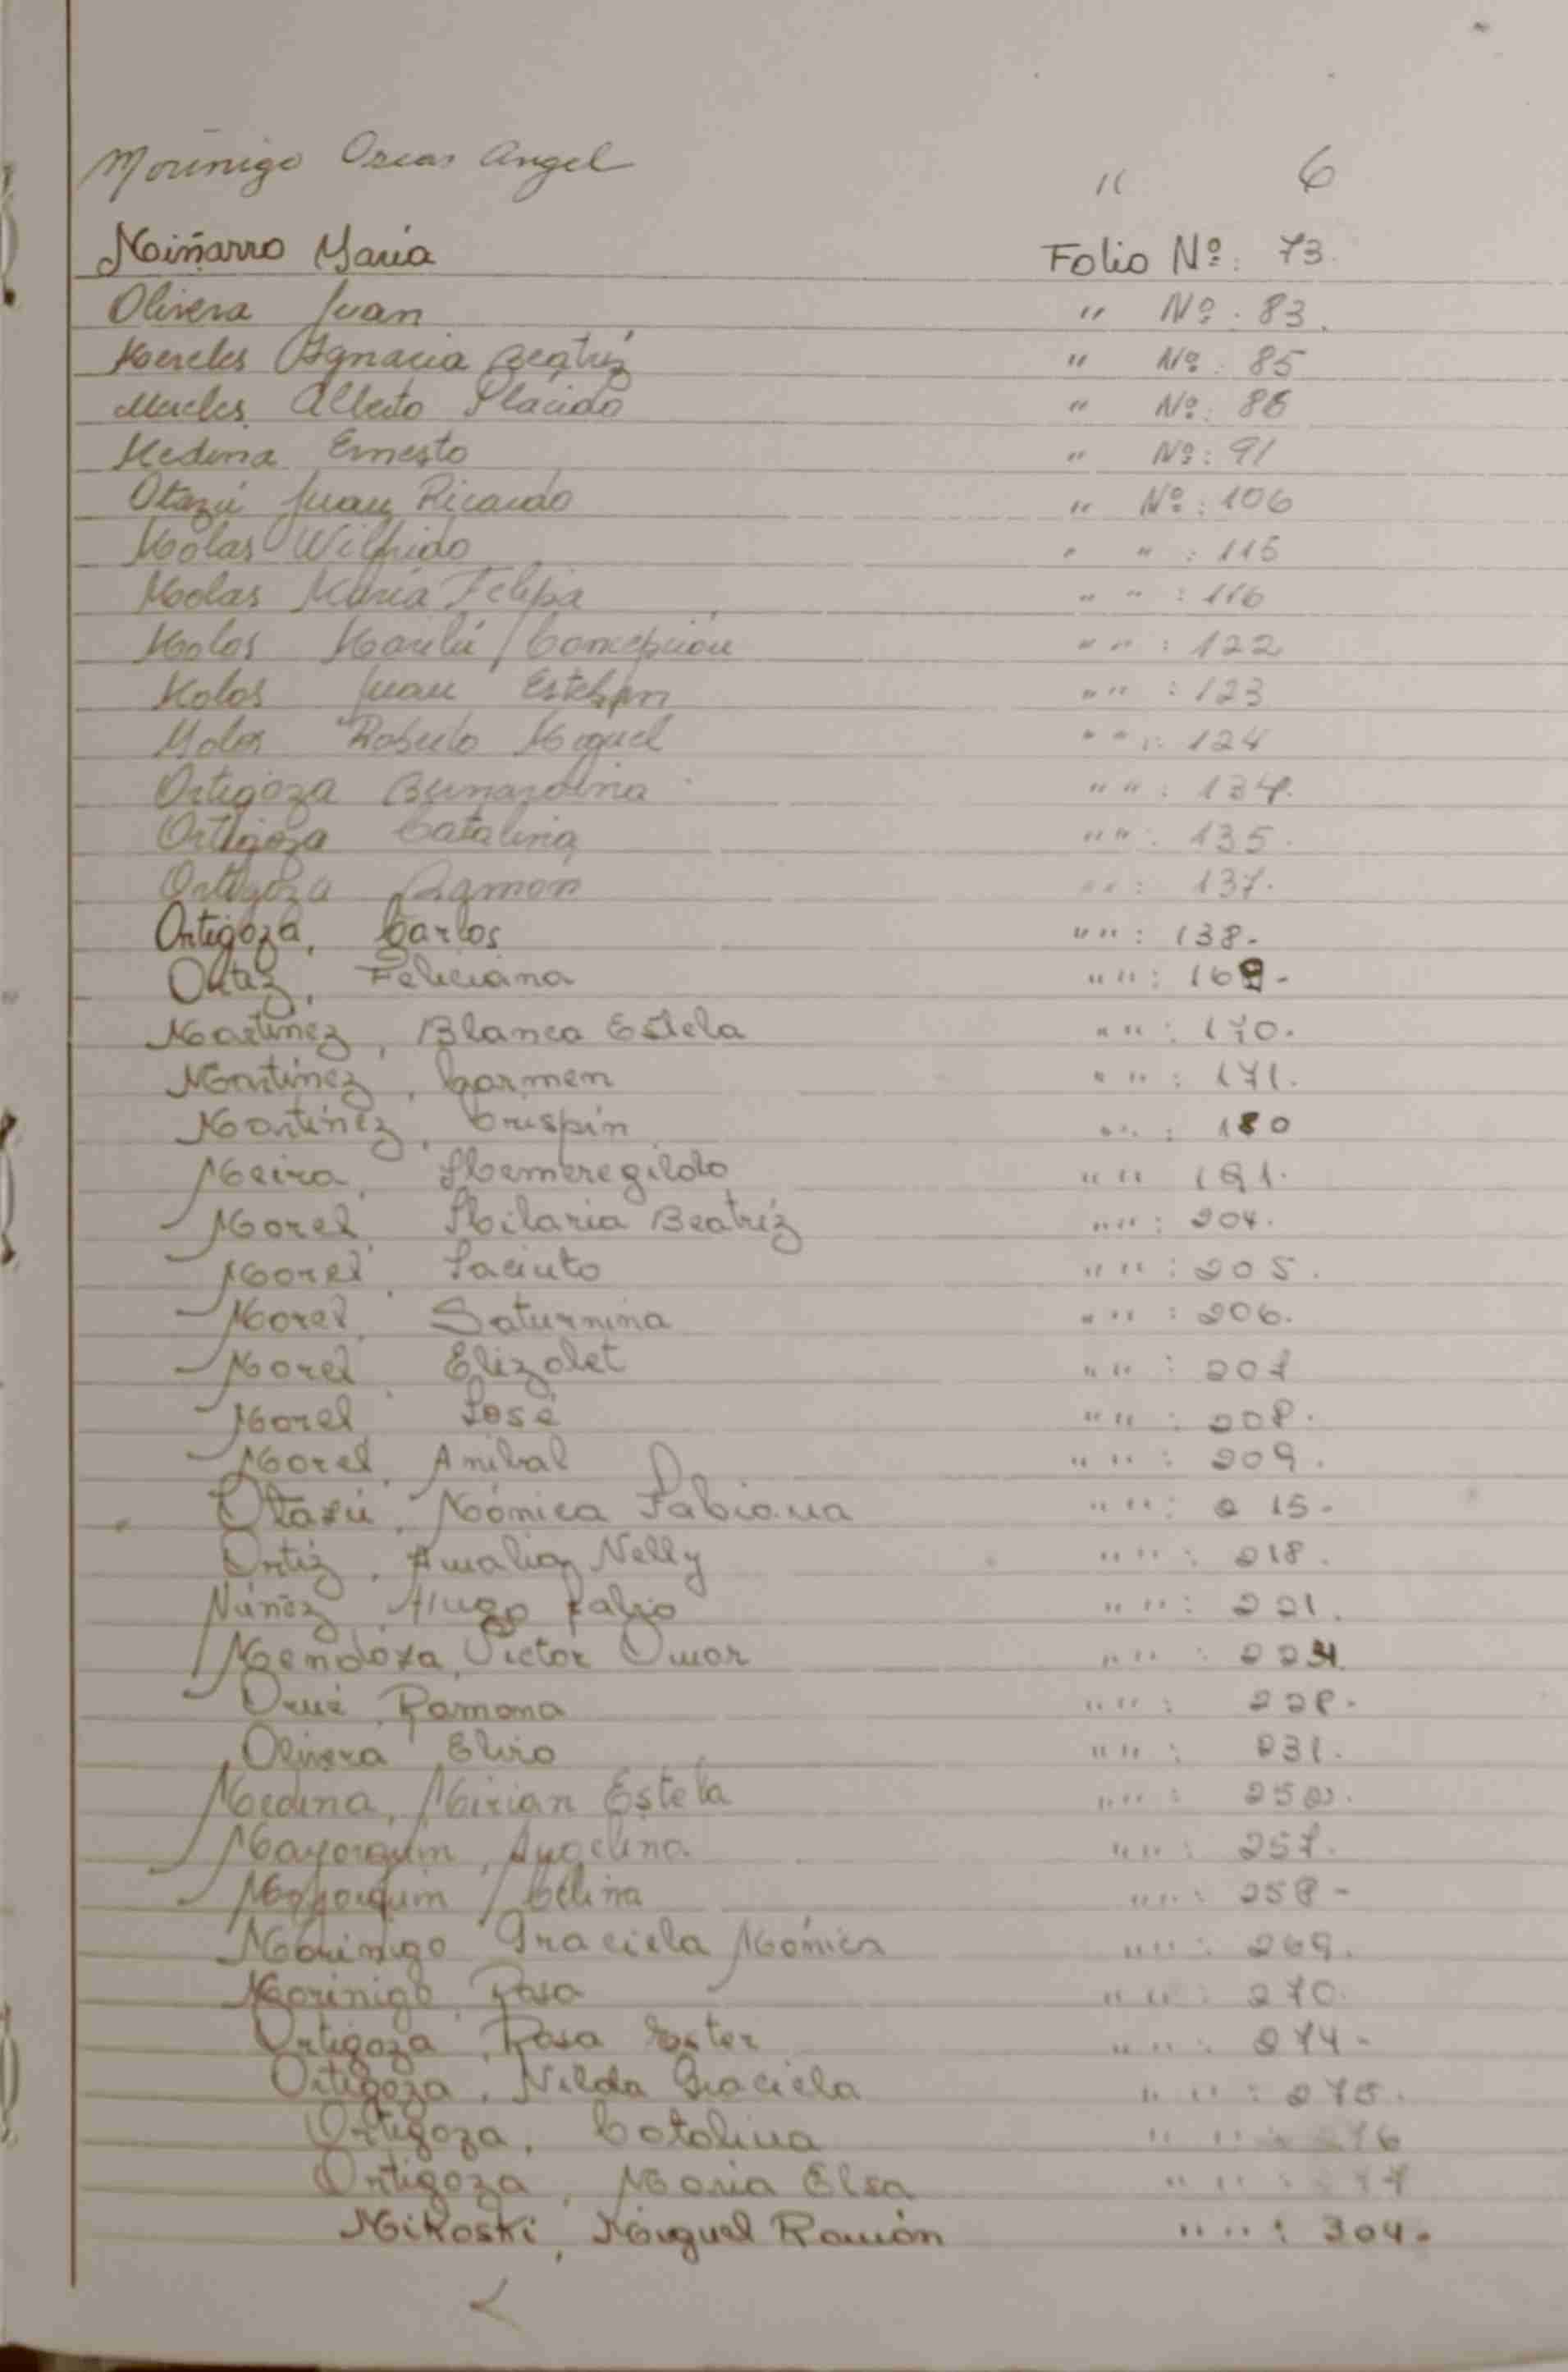 Morinigo Oscar Angel " 6
Miñarro María Folio Nº: 73.
Olivera Juan " Nº: 83.
Mereles Ignacia Beatríz " Nº: 85
Mereles Alberto Plácido " Nº: 86
Medina Ernesto " Nº: 91
Otazú Juan Ricardo " Nº: 106
Molas Wilfrido " " : 115
Molas María Felipa " " : 116
Molas Concepción " " : 122
Molas Juan Esteban " " : 123
Molas Roberto Miguel " " : 124
Ortigoza Bernardina " " : 134.
Ortigoza Catalina " " : 135.
Ortigoza Ramón " " : 137.
Ortigoza, Carlos " " : 138.
Ortíz, Feliciana " " :
Martínez, Blanca Estela " " : 170.
Martínez, Carmen " " : 171.
Martínez, Crispín " " : 180
Meira, Hemeregildo " " 191.
Morel, Hilaria Beatríz " " : 204.
Morel, Jacinto " " : 205.
Morel, Saturnina " " : 206.
Morel, Elizabet " " : 207
Morel, José " " : 208.
Morel, Anibal " " : 209.
Otazú, Mónica Fabiana " " : 215.
Ortíz, Amalia Nelly " " : 218.
Núñez, Hugo " " : 221.
Mendoza, Victor Omar " " :
Orué, Ramona " " : 228.
Olivera Elvio " " : 231.
Medina, Mirian Estela " " : 252.
Mayorquim, " " : 257.
Mayorquim, Celina " " : 258-
Morinigo Graciela Mónica " " : 269.
Morinigo, Rosa " " : 270.
Ortigoza, Rosa Ester " " : 274-
Ortigoza, Nilda Graciela " " : 275.
Ortigoza, Catalina " " : 276
Ortigoza, María Elsa " " :
Mikoski, Miguel Ramón " " : 304.